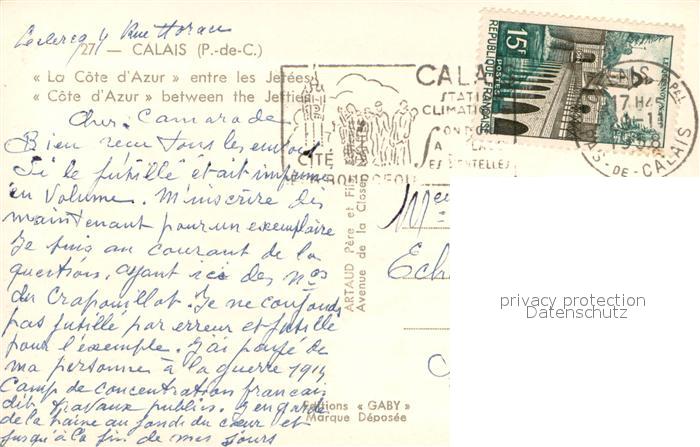 Leclercq 4 Rue
27 — CALAIS (P.-de-C.)
« La Côte d'Azur » entre les Jetées
« Côte d'Azur » between the Jetties
Cher Camarade
Bien reçu tous les
Si le fusillé était imprimé
en Volume. M'inscrire dès
maintenant pour un exemplaire
Je suis au courant de la
question, ayant ici des nos
du Crapouillot. Je ne confonds
pas fusillé par erreur et fusillé
pour l'exemple. J'ai payé de
ma personne à la guerre 1914
Camp de concentration français
dit travaux publics. J'en garde
de la haine au fond du cœur et
jusqu'à la fin de mes jours
CALAIS
STATION
CLIMATIQUE
SON PORT
SA PLAGE
SES DENTELLES
CITÉ DES
SIX BOURGEOIS
15F
POSTES
REPUBLIQUE FRANÇAISE
CALAIS PPAL
17 H 4
PAS-DE-CALAIS
ARTAUD Père et Fils
Avenue de la Close
Editions « GABY »
Marque Déposée
privacy protection
Datenschutz